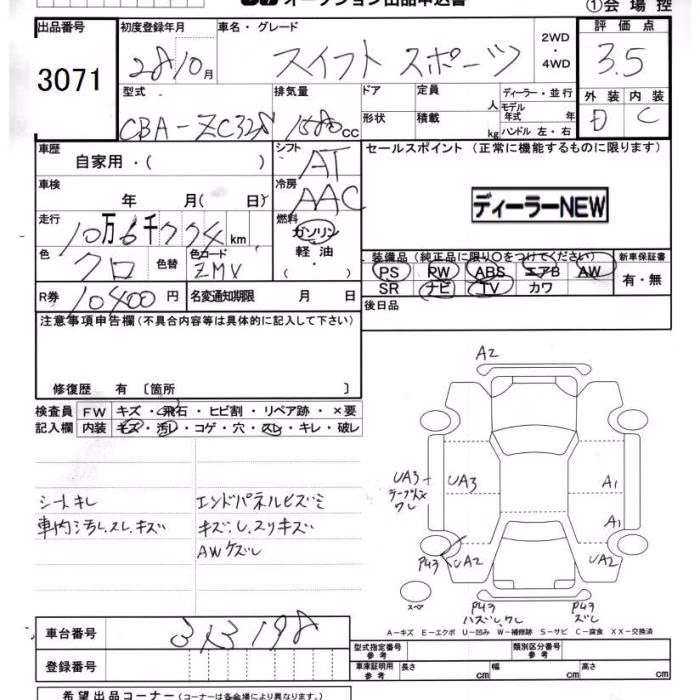 オークション出品申込書
①会場控
出品番号 初度登録年月 車名・グレード 2WD・4WD 評価点
3071 28 10月 スイフト スポーツ 3.5
型式 排気量 ドア 定員 人 ディーラー・並行 外装 内装
CBA-ZC32S 1580cc 形状 積載 kg モデル年式 年 D C
ハンドル 左・右
車歴 自家用・( ) シフト AT セールスポイント (正常に機能するものに限ります)
車検 年 月( 日) 冷房 AAC
ディーラーNEW
走行 10万6千774km 燃料 ガソリン・軽油・
色 クロ 色替 色コード ZMV 装備品 (純正品に限り○をつけてください) 新車保証書
PS PW ABS エアB AW 有・無
R券 10400円 名変通知期限 月 日 SR ナビ TV カワ
後日品
注意事項申告欄(不具合内容等は具体的に記入して下さい)
修復歴 有 〔箇所 〕
検査員 FW キズ・飛石・ヒビ割・リペア跡・×要
記入欄 内装 キズ・汚レ・コゲ・穴・スレ・キレ・破レ
シートキレ エンドパネルヒズミ
車内汚レ.スレ.キズ キズ.U.スリキズ
AWケズレ
A2
UA3 UA3 A1
ワレ A1
P43 UA2 UA2
スペア P43 P43
ハズレ.ワレ ズレ
A-キズ E-エクボ U-凹み W-補修跡 S-サビ C-腐食 XX-交換済
車台番号 313198 型式指定番号 参考 類別区分番号 参考
登録番号 車庫証明用 参考 長さ cm 幅 cm 高さ cm
希望出品コーナー (コーナーは各会場により異なります。)